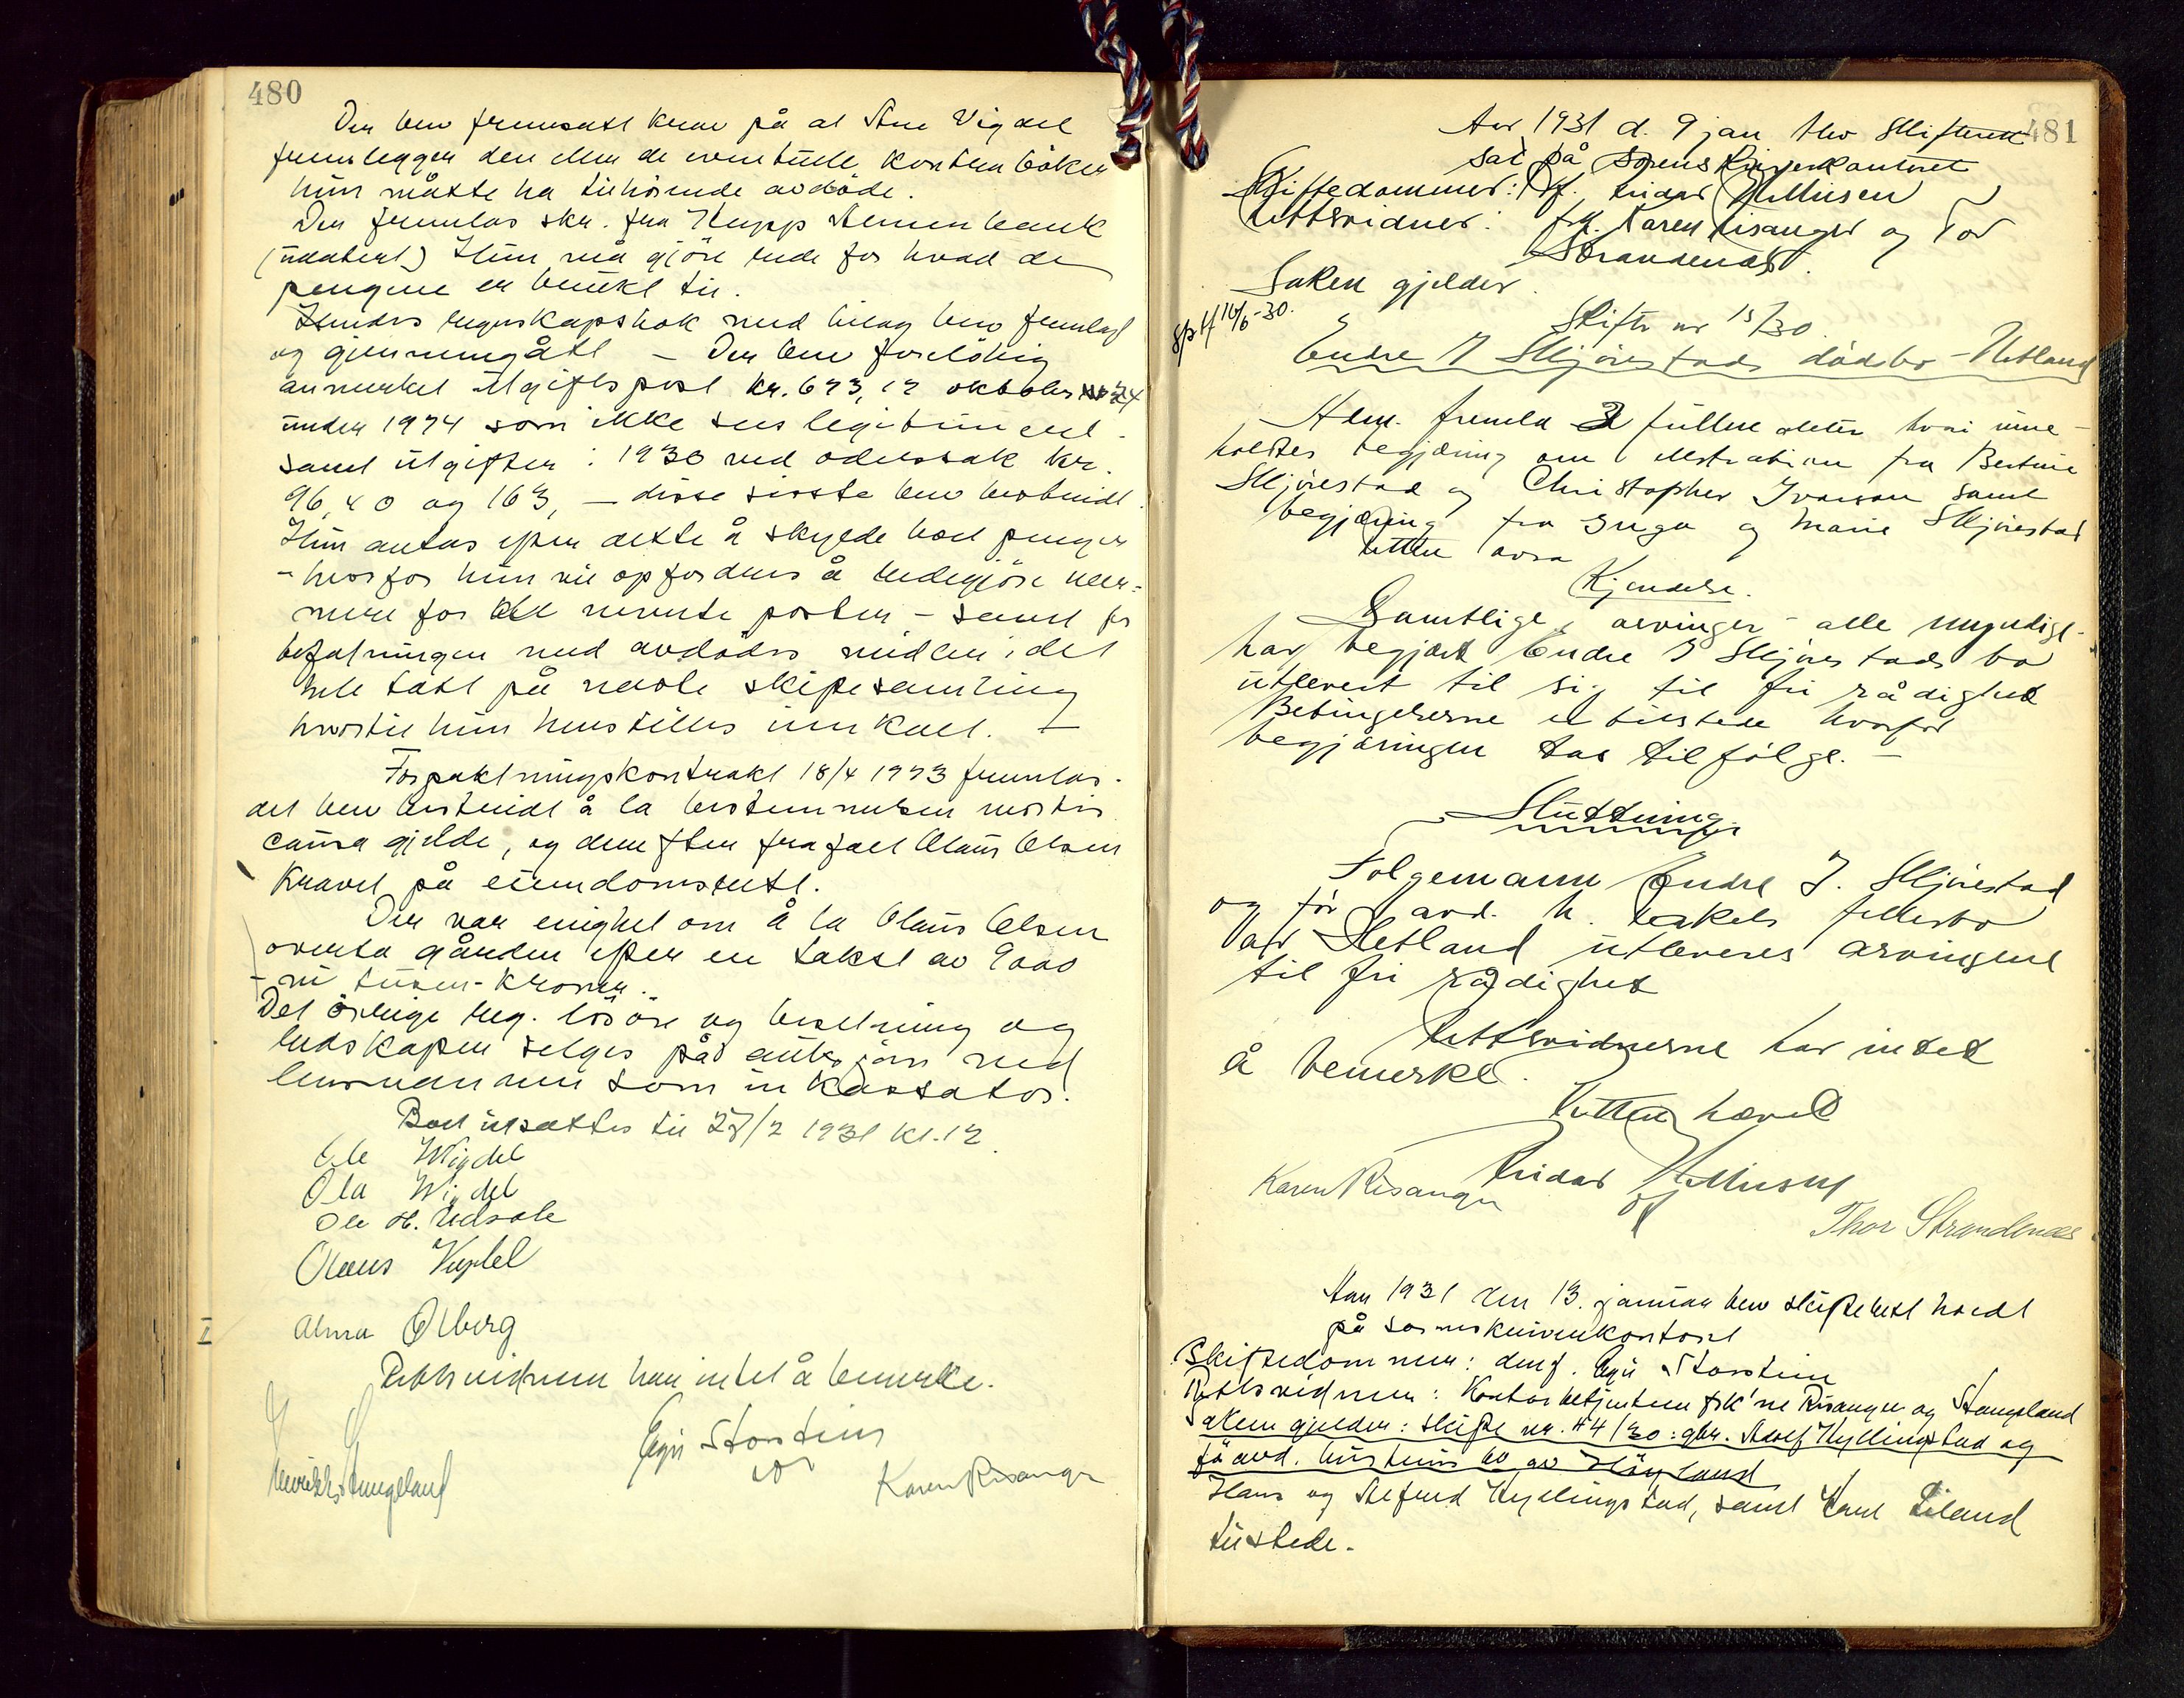 480
Der blev fremsatt krav på at Ane Vigdel
fremlegger den eller de eventuelle kontra bøker
hun måtte ha tilhörende avdöde.
Der fremlas skr. fra Klepp Sparebank
(udatert) Hun må gjöre rede for hvad de
pengene er brukt til.
Hendes regnskapsbok med bilag blev fremlagt
og gjennemgått – Der blev foreløbig
anmerket utgiftspost kr. 673,12 oktober
under 1924 som ikke sees legitimert.
samt utgifter i 1930 ved odelssak kr.
96,40 og 163, – disse siste blev bestridt.
Hun antas efter dette å skylde boet penger
– hvorfor hun vil opfordres å redegjöre nær-
mere for de nevnte poster – samt for
befatningen med avdödes midler i det
hele tatt på neste skiftesamling
hvortil hun henstilles innkalt. –
Forpaktningskontrakt 18/4 1923 fremlas.
det blev bestridt å la bestemmelsen mortis
causa gjelde, og derefter frafalt Olaus Olsen
kravet på eiendomsrett.
Der var enighet om å la Olaus Olsen
overta gården efter en takst av 9000
– ni tusen – kroner.
Det övrige reg. lösöre og besetning og
redskaper selges på auksjon ved
lensmannen som inkassator.
Boet utsattes til 27/2 1931 kl. 12.
Ole Wigdel
Ola Wigdel
Ole H.
Olaus Vigdel
Alma Ølberg
Rettsvidnene har intet å bemerke.
Egil Storstein
Stangeland
Karen Risanger
481
Aar 1931 d. 9 jan blev Skifterett
sat på Sorenskriverkontoret
Skiftedommer: Df. Reidar
Rettsvidner: frk. Karen Risanger og Tor
Strandenæs.
Saken gjelder:
Skifte nr 15/30.
Endre J Skjörestads dødsbo – Hetland
Adm. fremla 3 fullmakter hvori inne-
holdtes begjæring om extradition fra Bertine
Skjörestad og Christopher Ivarson samt
begjæring fra Inga og Marie Skjörestad
Retten avsa
Kjendelse.
Samtlige arvinger – alle myndige –
har begjært Endre J Skjörestads bo
utlevert til sig til fri rådighet
Betingelserne er tilstede hvorfor
begjæringen tas tilfölge. –
Sluttning
Folgemann Endre J. Skjörestad
og för avd. h. Rakels fellesbo
av Hetland utleveres arvingene
til fri rådighet
Rettsvidnerne har intet
å bemerke.
Retten hævet
Reidar
Karen Risanger
Thor Strandenæs
Aar 1931 den 13. januar blev skifterett holdt
på sorenskriverkontoret
Skiftedommer: dmf. Egil Storstein
Rettsvidner: Kontorbetjentene frk'ne Risanger og Stangeland
Saken gjelder: skifte nr. 44/30: gbr. Adolf Kyllingstad og
föavd. hustrus bo av Höyland
Hans og Kyllingstad, samt Liland
tilstede.